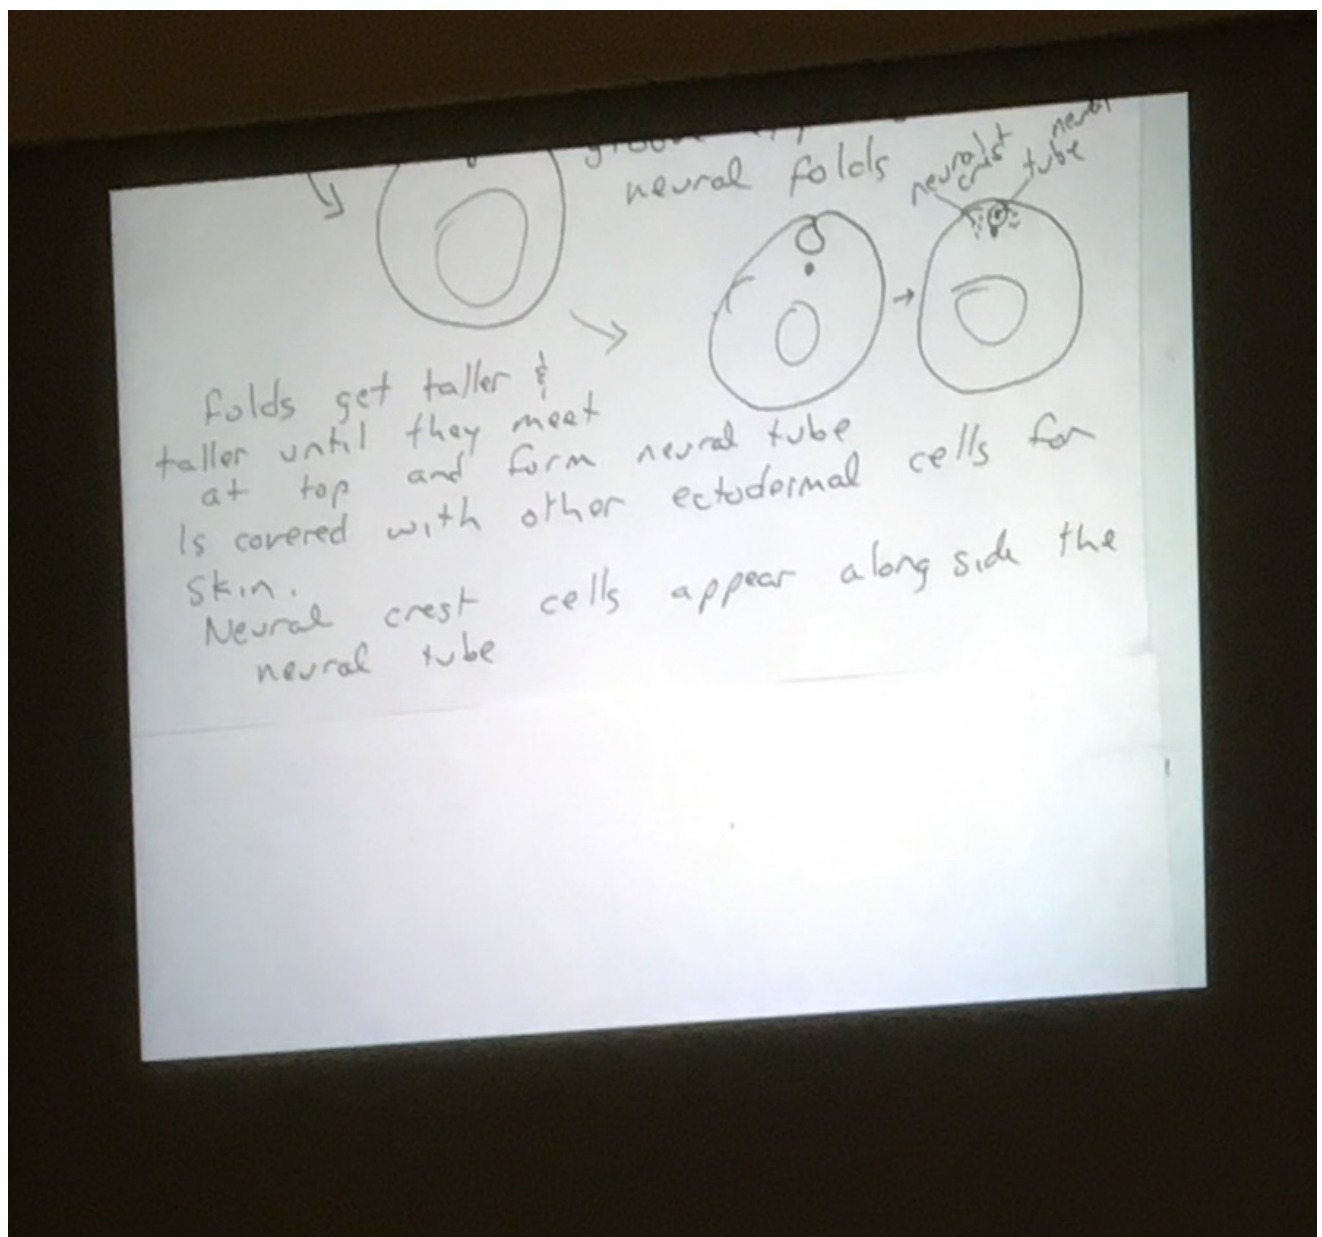 neural folds
neural crest
neural
tube
folds get taller &
taller until they meet
at top and form neural tube
Is covered with other ectodermal cells for
skin.
Neural crest cells appear along side the
neural tube